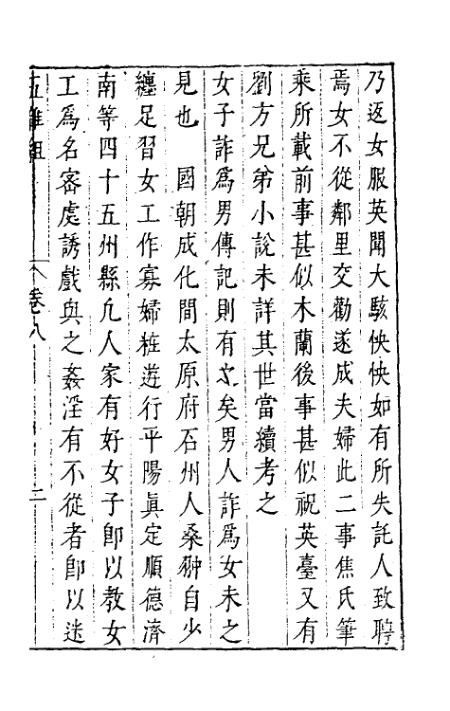 乃返女服英聞大駭怏怏如有所失託人致聘
焉女不從鄰里交勸遂成夫婦此二事焦氏筆
乘所載前事甚似木蘭後事甚似祝英臺又有
劉方兄弟小說未詳其世當續考之
女子詐爲男傳記則有之矣男人詐爲女未之
見也　國朝成化間太原府石州人桑翀自少
纏足習女工作寡婦粧遊行平陽眞定順德濟
南等四十五州縣凢人家有好女子卽以教女
工爲名密處誘戲與之姦淫有不從者卽以迷
五雜組
卷八
二